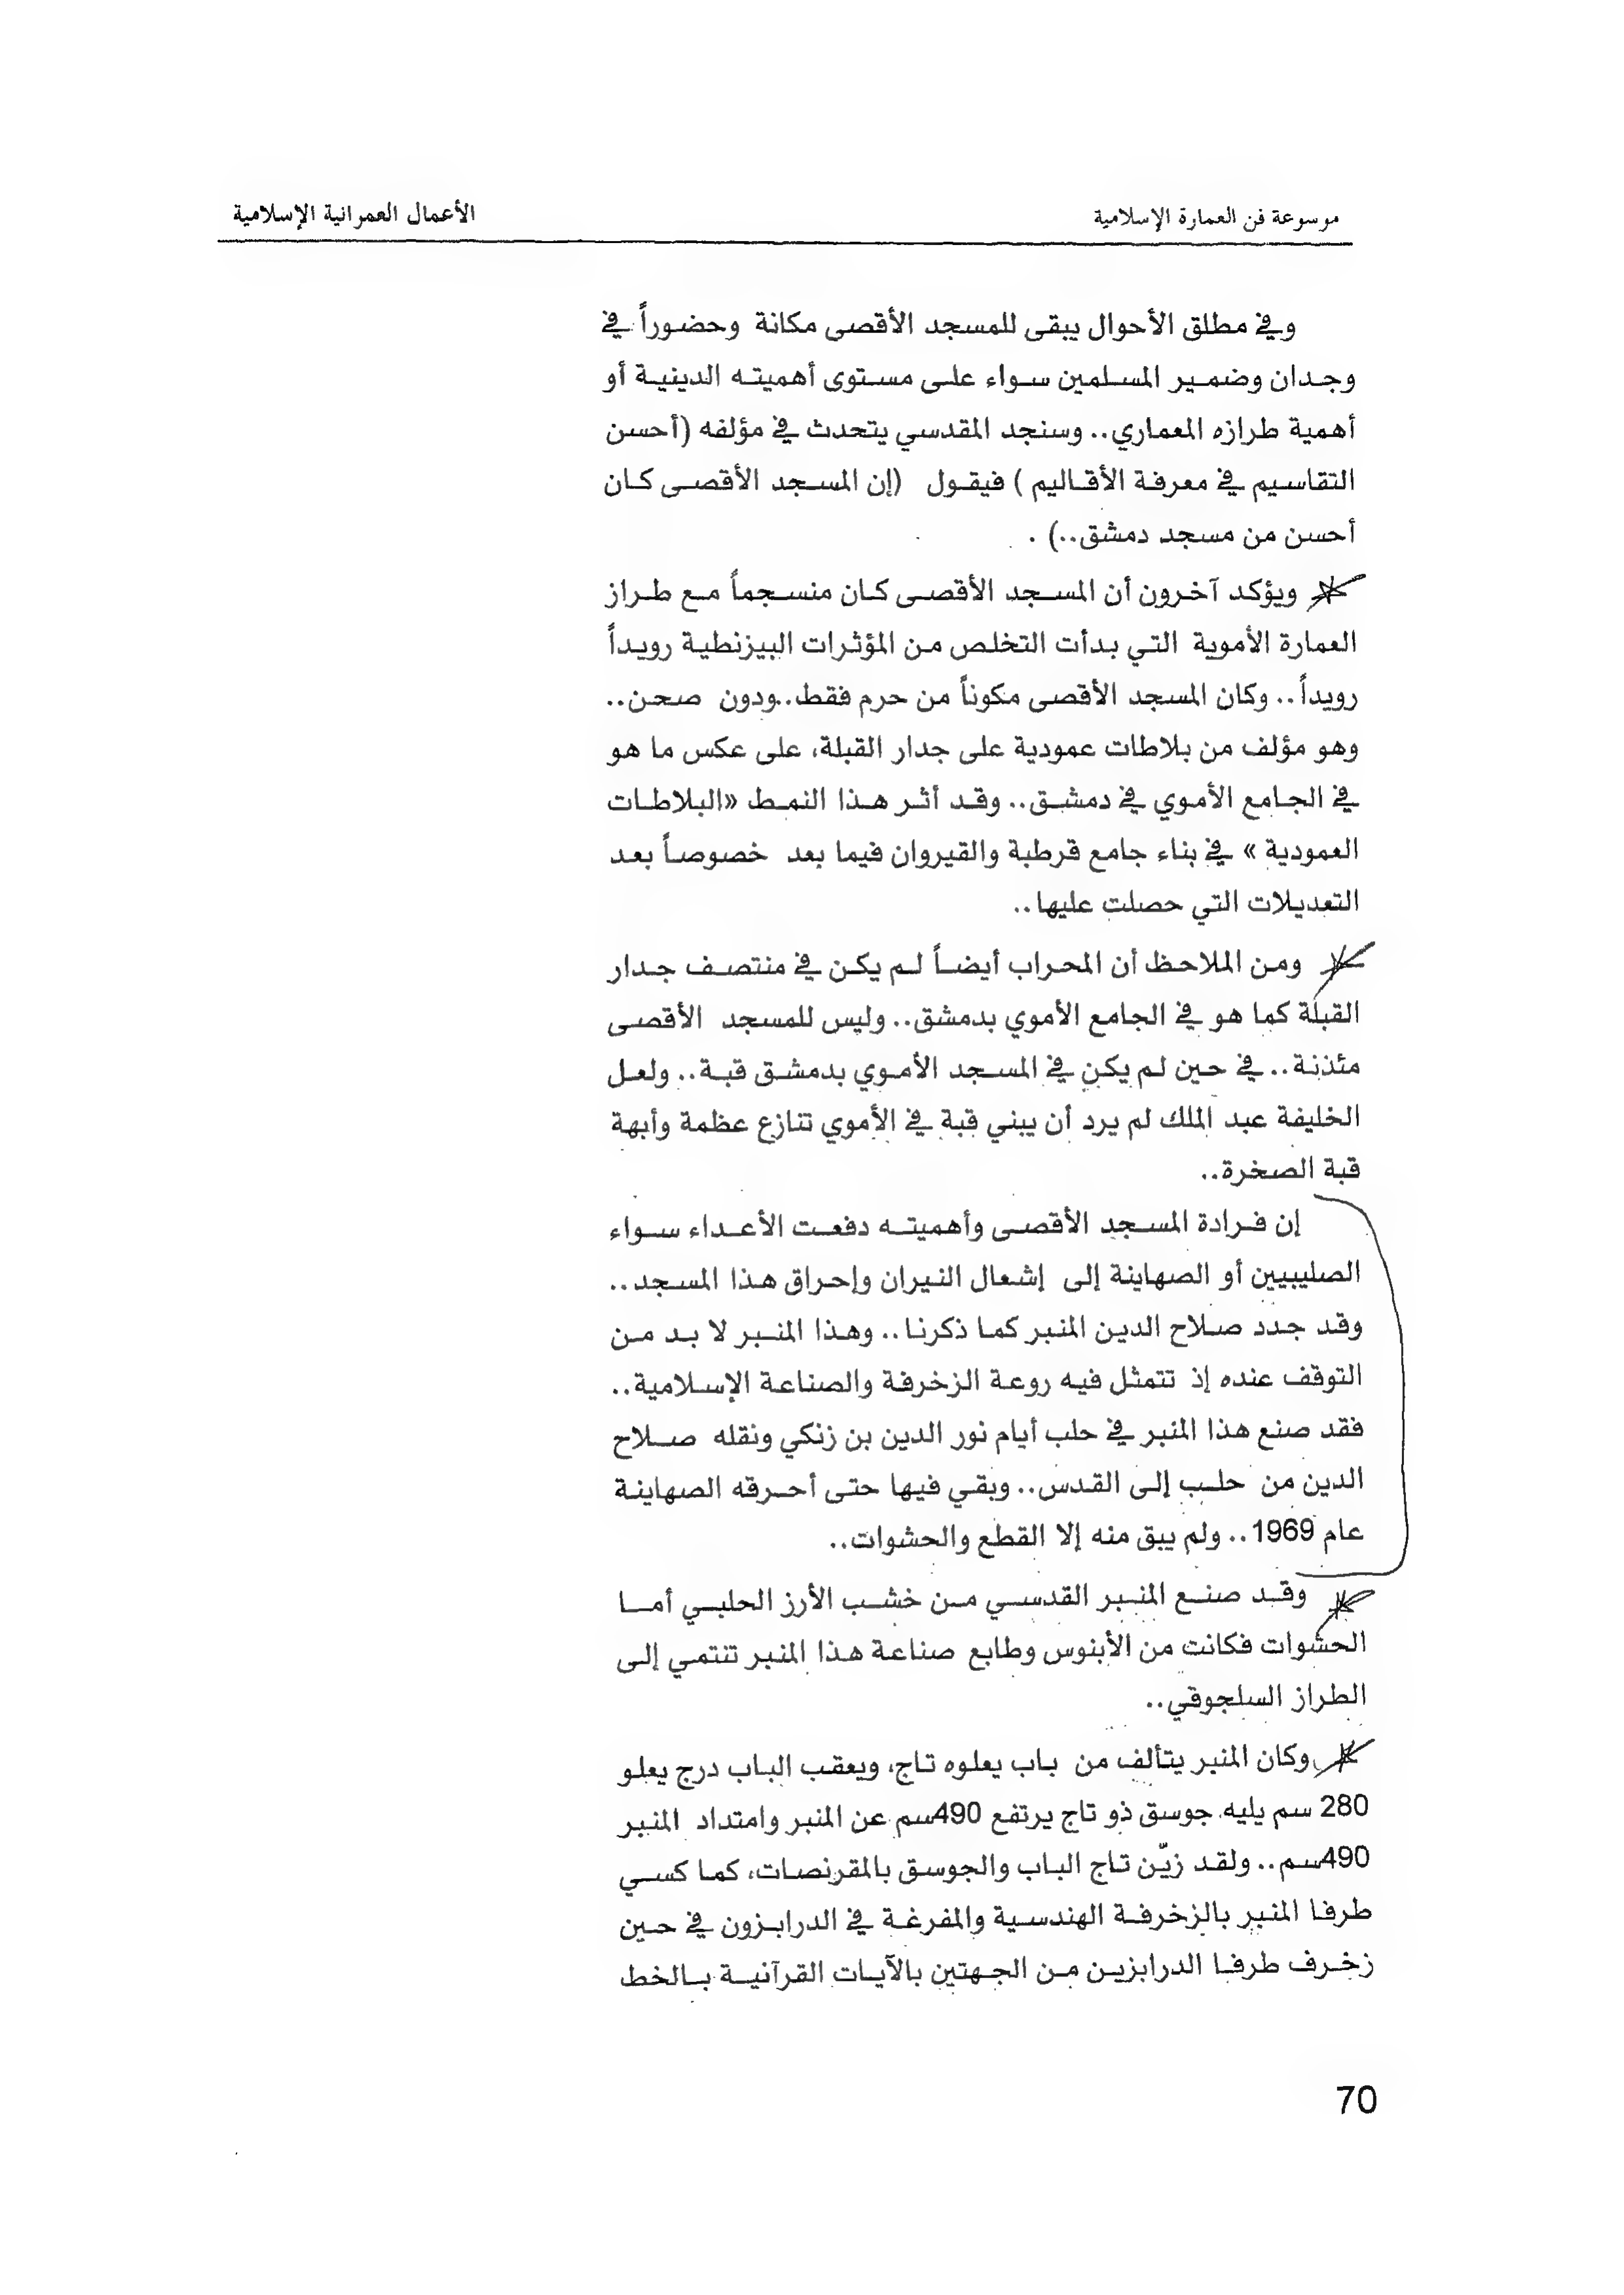 موسوعة فن العمارة الإسلامية
الأعمال العمرانية الإسلامية
وفي مطلق الأحوال يبقى للمسجد الأقصى مكانة وحضوراً في
وجدان وضمير المسلمين سواء على مستوى أهميته الدينية أو
أهمية طرازه المعماري.. وسنجد المقدسي يتحدث في مؤلفه (أحسن
التقاسيم في معرفة الأقاليم ) فيقول (إن المسجد الأقصى كان
أحسن من مسجد دمشق..) .
ويؤكد آخرون أن المسجد الأقصى كان منسجماً مع طراز
العمارة الأموية التي بدأت التخلص من المؤثرات البيزنطية رويداً
رويداً.. وكان المسجد الأقصى مكوناً من حرم فقط..ودون صحن..
وهو مؤلف من بلاطات عمودية على جدار القبلة، على عكس ما هو
في الجامع الأموي في دمشق.. وقد أثر هذا النمط «البلاطات
العمودية » في بناء جامع قرطبة والقيروان فيما بعد خصوصاً بعد
التعديلات التي حصلت عليها..
ومن الملاحظ أن المحراب أيضاً لم يكن في منتصف جدار
القبلة كما هو في الجامع الأموي بدمشق.. وليس للمسجد الأقصى
مئذنة.. في حين لم يكن في المسجد الأموي بدمشق قبة.. ولعل
الخليفة عبد الملك لم يرد أن يبني قبة في الأموي تنازع عظمة وأبهة
قبة الصخرة..
إن فرادة المسجد الأقصى وأهميته دفعت الأعداء سواء
الصليبيين أو الصهاينة إلى إشعال النيران وإحراق هذا المسجد..
وقد جدد صلاح الدين المنبر كما ذكرنا.. وهذا المنبر لا بد من
التوقف عنده إذ تتمثل فيه روعة الزخرفة والصناعة الإسلامية..
فقد صنع هذا المنبر في حلب أيام نور الدين بن زنكي ونقله صلاح
الدين من حلب إلى القدس.. وبقي فيها حتى أحرقه الصهاينة
عام 1969.. ولم يبق منه إلا القطع والحشوات..
وقد صنع المنبر القدسي من خشب الأرز الحلبي أما
الحشوات فكانت من الأبنوس وطابع صناعة هذا المنبر تنتمي إلى
الطراز السلجوقي..
وكان المنبر يتألف من باب يعلوه تاج، ويعقب الباب درج يعلو
280 سم يليه جوسق ذو تاج يرتفع 490سم عن المنبر وامتداد المنبر
490سم.. ولقد زيّن تاج الباب والجوسق بالمقرنصات، كما كسي
طرفا المنبر بالزخرفة الهندسية والمفرغة في الدرابزون في حين
زخرف طرفا الدرابزين من الجهتين بالآيات القرآنية بالخط
70